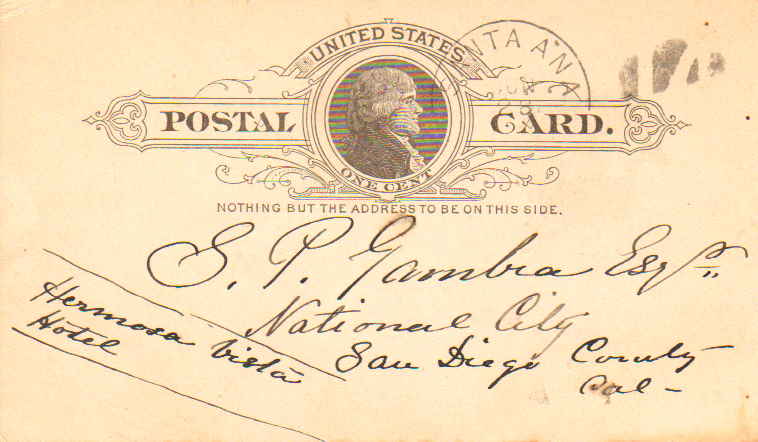 UNITED STATES
SANTA ANA
POSTAL CARD.
ONE CENT
NOTHING BUT THE ADDRESS TO BE ON THIS SIDE.
S. P. Gambia Esqr.
National City
San Diego County
Cal-
Hermosa Vista
Hotel